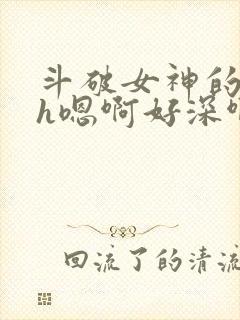 斗破女神的
h嗯啊好深
回流了的清流